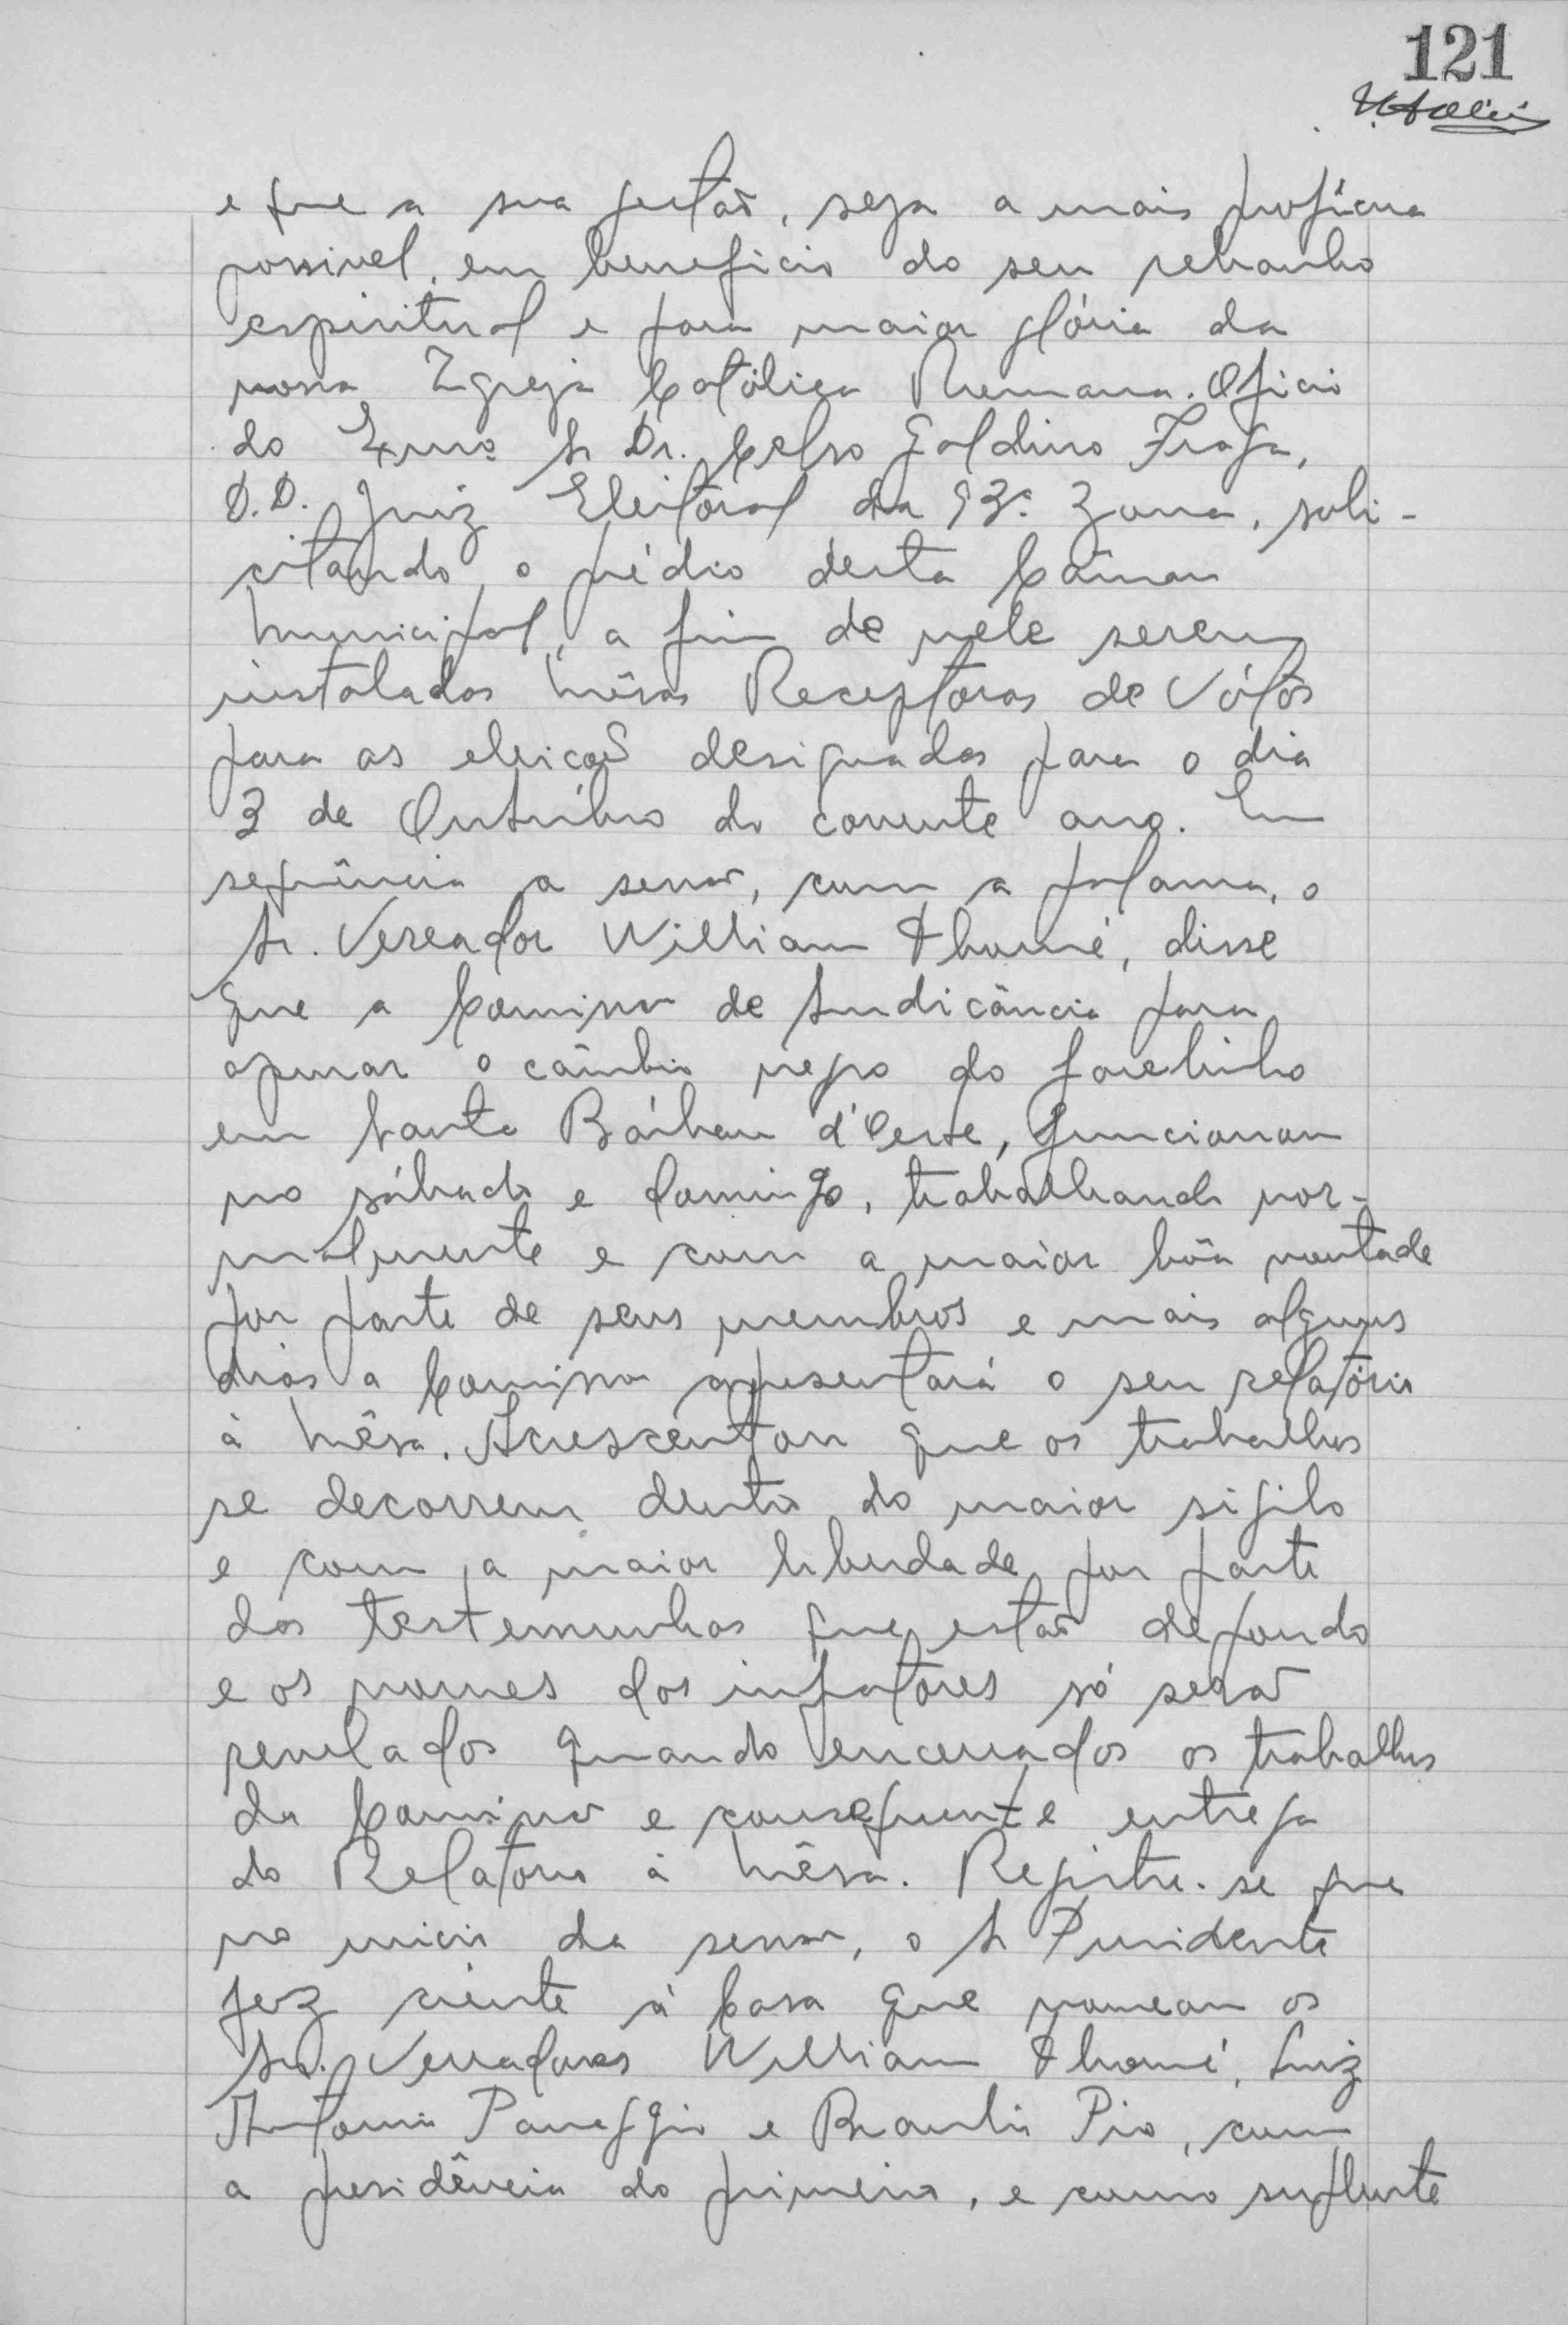 121
e que a sua gestão, seja a mais profícua
possivel, em beneficio do seu rebanho
espiritual e para maior glória da
nossa Igreja Católica Romana. Oficio
do Exmo Sr Dr. Celso Galdino Fraga,
D.D. Juiz Eleitoral da 93ª Zona, soli-
citando o prédio desta Câmara
Municipal, a fim de nele serem
instaladas Mêsas Receptoras de Vótos
para as eleições designadas para o dia
3 de Outubro do corrente ano. Em
sequência a sessão, com a palavra, o
Sr. Vereador William Thomé, disse
que a Comissão de Sindicância para
apurar o câmbio negro do farelinho
em Santa Bárbara d'Oeste, funcionou
no sábado e domingo, trabalhando nor-
malmente e com a maior bôa vontade
por parte de seus membros e mais alguns
dias a Comissão apresentará o seu relatório
à Mêsa. Acrescentou que os trabalhos
se decorrem dentro do maior sigilo
e com a maior liberdade por parte
das testemunhas que estão depondo
e os nomes dos infratores só serão
revelados quando encerrados os trabalhos
da Comissão e consequente entrega
do Relatorio à Mêsa. Registre-se que
no inicio da sessão, o Sr Presidente
fez ciente à Casa que nomeou os
Srs. Vereadores William Thomé, Luiz
Antonio Paneggio e Braulio Pio, com
a presidência do primeiro, e como suplente